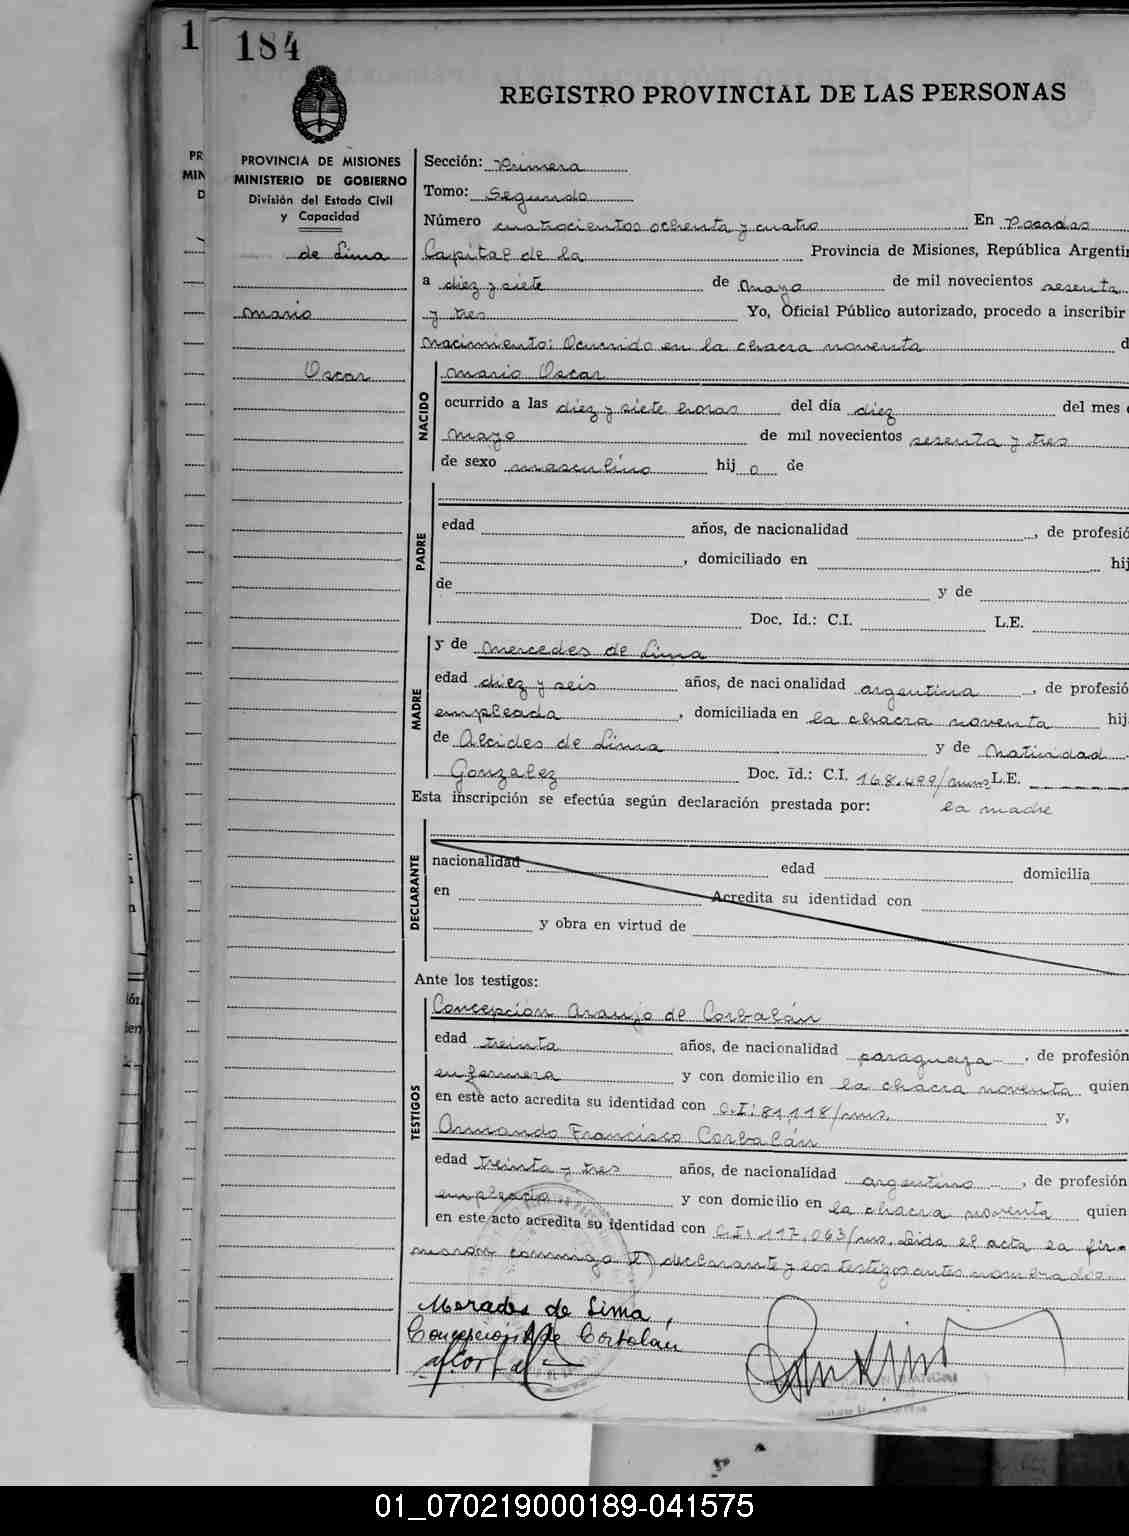 1
184
REGISTRO PROVINCIAL DE LAS PERSONAS
PROVINCIA DE MISIONES
MINISTERIO DE GOBIERNO
División del Estado Civil
y Capacidad
de Lima
Mario
Oscar
Sección: Primera
Tomo: Segundo
Número cuatrocientos ochenta y cuatro En Posadas
Capital de la Provincia de Misiones, República Argentin
a diez y siete de Mayo de mil novecientos sesenta
y tres Yo, Oficial Público autorizado, procedo a inscribir
Nacimiento: Ocurrido en la chacra noventa d
NACIDO
Mario Oscar
ocurrido a las diez y siete horas del día diez del mes
Mayo de mil novecientos sesenta y tres
de sexo masculino hij o de
PADRE
edad años, de nacionalidad , de profesió
, domiciliado en hij
de y de
Doc. Id.: C.I. L.E.
MADRE
y de Mercedes de Lima
edad diez y seis años, de nacionalidad argentina , de profesió
empleada , domiciliada en la chacra noventa hij
de Alcides de Lima y de Natividad
Gonzalez Doc. Id.: C.I. 168.499/mnes L.E.
Esta inscripción se efectúa según declaración prestada por: la madre
DECLARANTE
nacionalidad edad domicilia
en Acredita su identidad con
y obra en virtud de
Ante los testigos:
TESTIGOS
Concepción Araujo de Corbalán
edad treinta años, de nacionalidad paraguaya , de profesión
enfermera y con domicilio en la chacra noventa quien
en este acto acredita su identidad con C.I: 81,118/mns. y,
Armando Francisco Corbalán
edad treinta y tres años, de nacionalidad argentino , de profesión
empleado y con domicilio en la chacra noventa quien
en este acto acredita su identidad con C.I: 117.063/mns. Leida el acta la fir-
maron conmigo declarante y los testigos antes nombrados
Mercedes de Lima,
Concepcion A de Corbalan
01_070219000189-041575